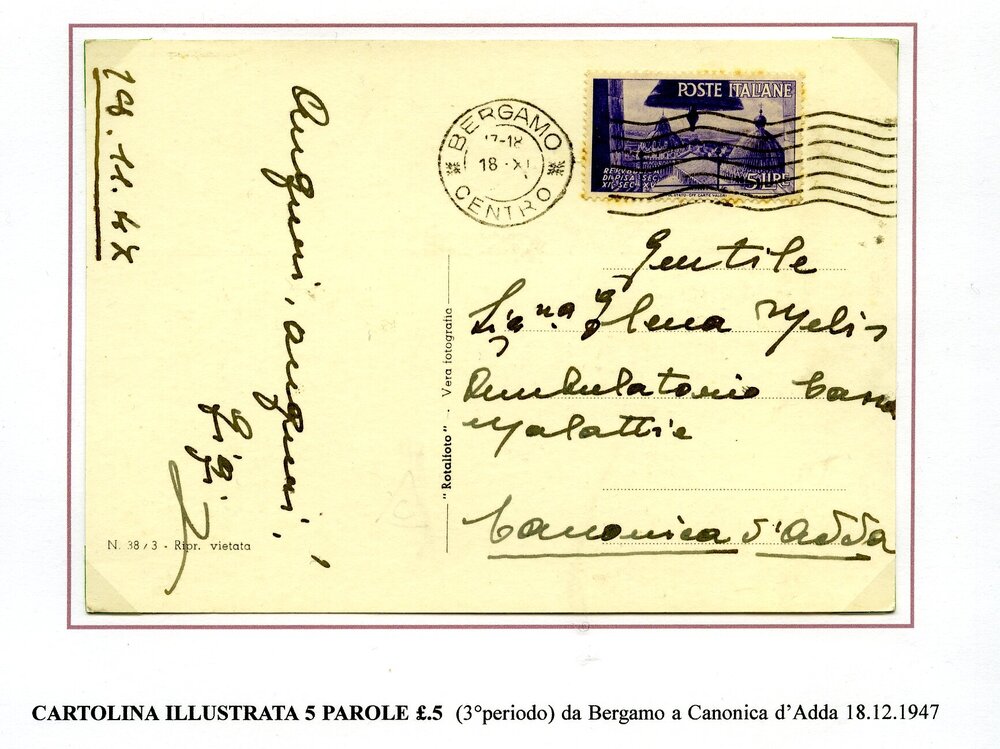 18.11.47
Auguri, auguri,
Gigi
N. 38/3 - Ripr. vietata
"Rotalfoto" - Vera fotografia
BERGAMO
17-18
18 · XI
CENTRO
POSTE ITALIANE
REPVBBLICA
DI PISA SEC
XI SEC XV
5 LIRE
Gentile
Sig.na Elena Melis
Ambulatorio Cassa
Malattie
Canonica d'Adda
CARTOLINA ILLUSTRATA 5 PAROLE £.5 (3°periodo) da Bergamo a Canonica d'Adda 18.12.1947